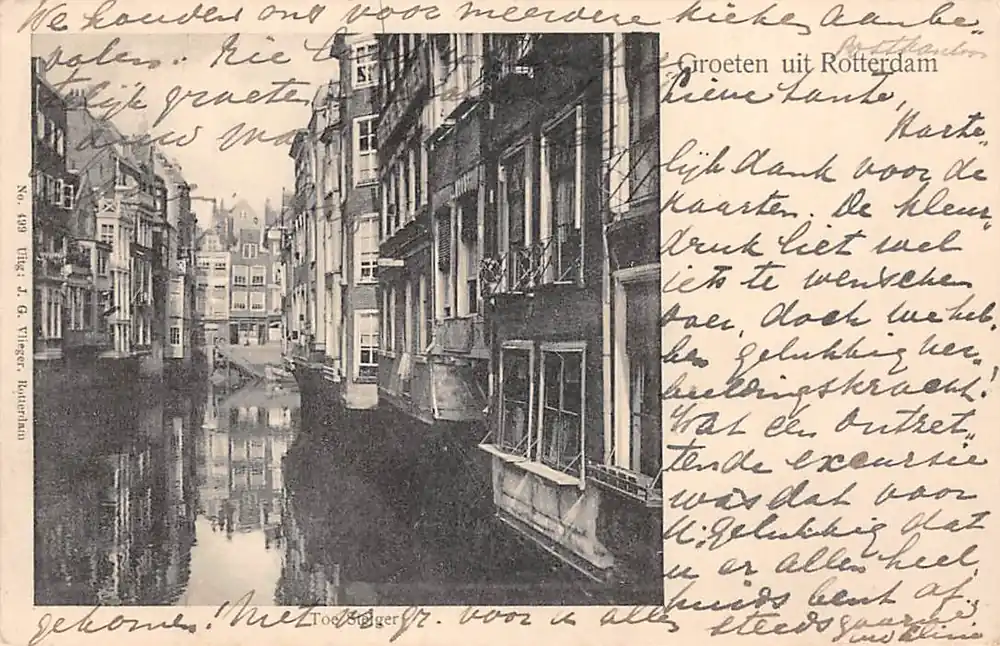 We houden ons voor meerdere kiekes aanbe-
volen.
groeten
Groeten uit Rotterdam
Lieve tante,
Harte-
lijk dank voor de
kaarten. De kleur-
druk liet wel
iets te wenschen
over, doch we heb-
ben gelukkig ver-
beeldingskracht!
Wat een ontzet-
tende excursie
was dat voor
U, gelukkig dat
u er alles heel
huids bent af-
gekomen! Met gr. voor u alle
steeds
Toe Steiger
No. 499 Uitg: J. G. Vlieger, Rotterdam